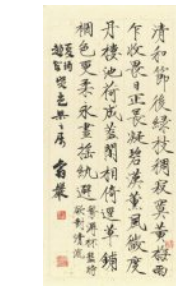 清和節後綠枝稠寂寞黃梅雨
乍收畏日正長凝碧漢薰風微度
丹樓池荷成蓋閒相倚逕草鋪
裀色更柔永晝搖紈避
繁溽杯盤時
欲對清流